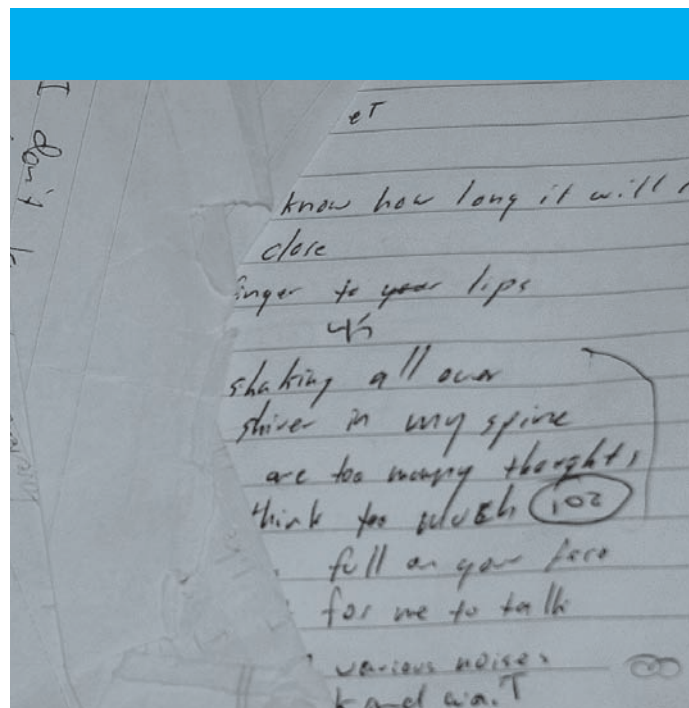 I don't
know how long it will
close
finger to your lips
shaking all over
shiver in my spine
are too many thoughts
think too much
full on your face
for me to talk
various noises